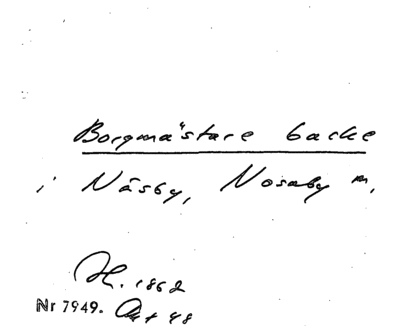 Borgmästare backe
i Näsby, Nosaby sn,
H. 1862
Nr 7949. Akt 48